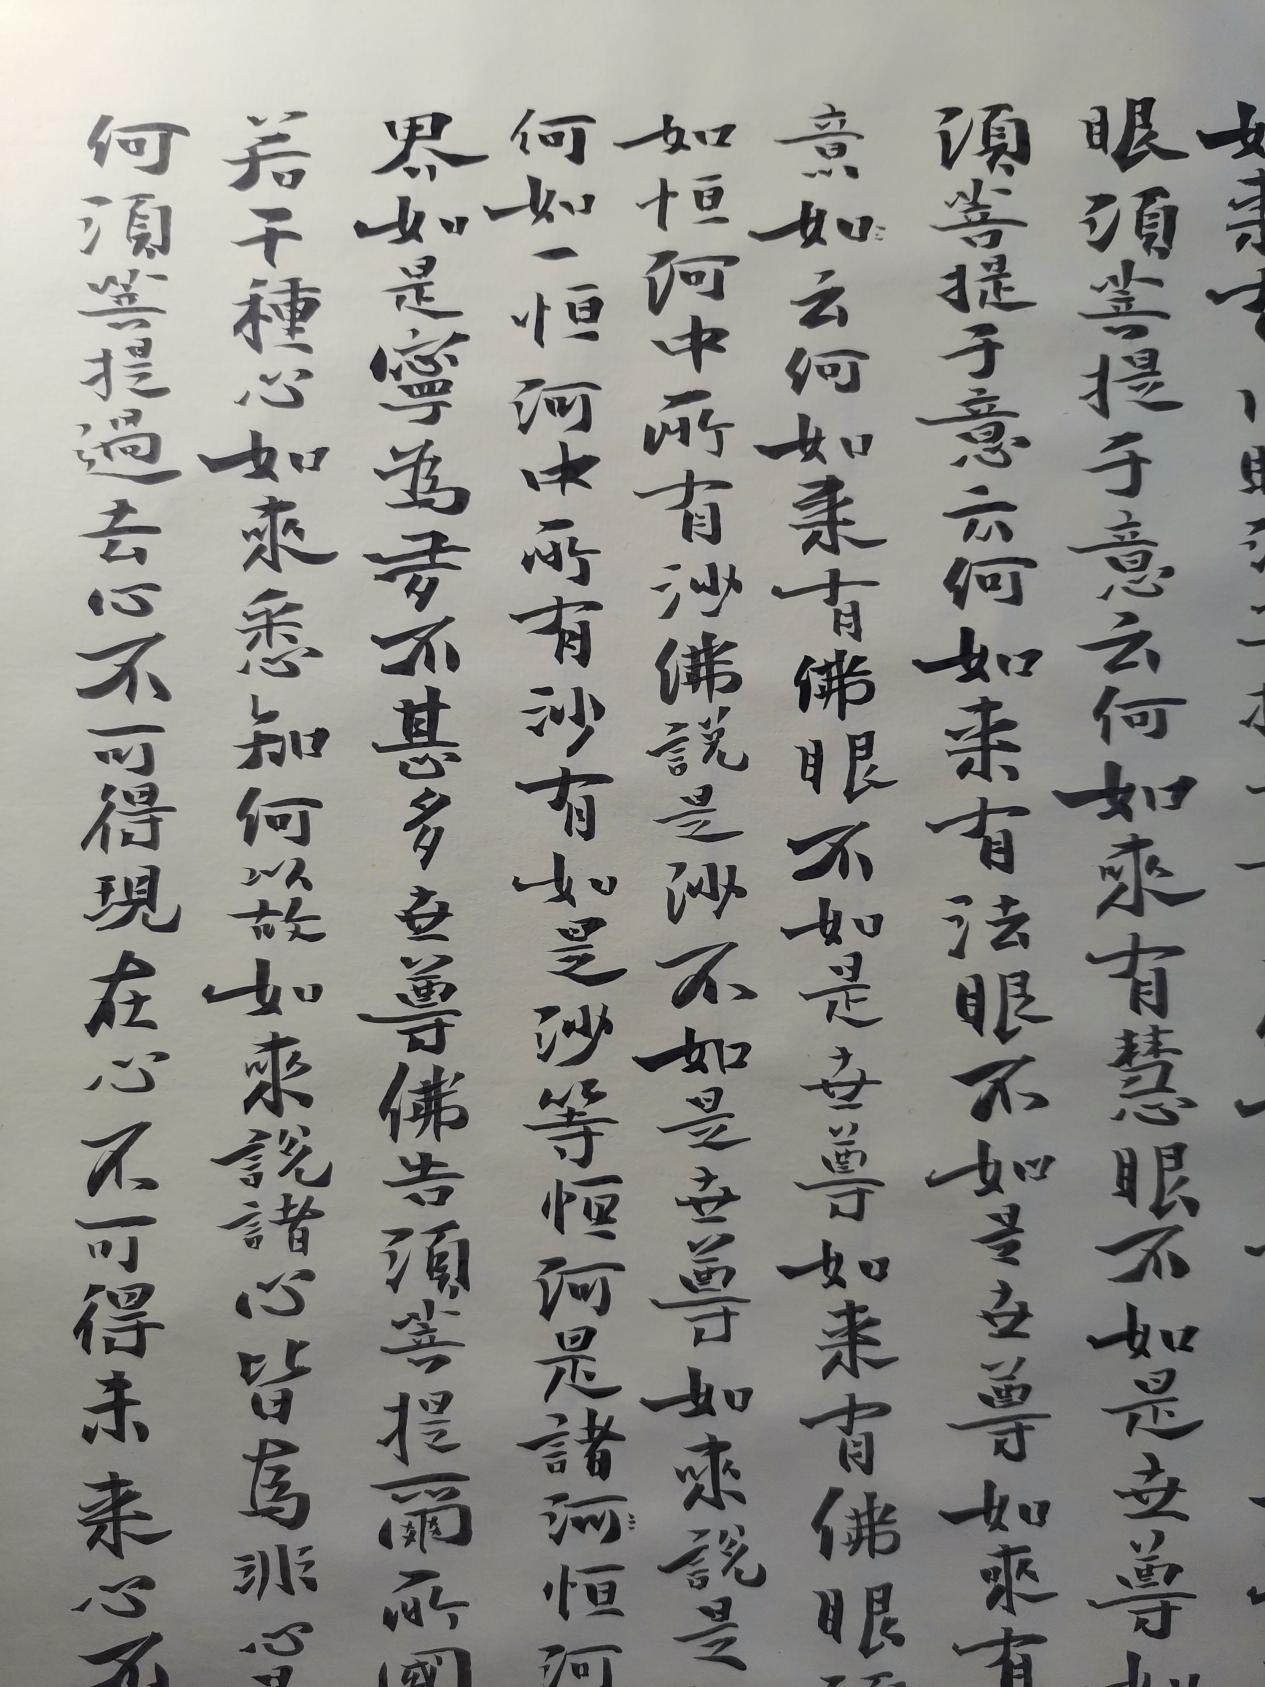 如来
眼須菩提于意云何如來有慧眼不如是世尊如
須菩提于意云何如来有法眼不如是世尊如來有
意如云何如来有佛眼不如是世尊如来有佛眼須
如恒河中所有沙佛說是沙不如是世尊如來說是
何如一恒河中所有沙有如是沙等恒河是諸河恒河
界如是寧為多不甚多世尊佛告須菩提爾所國
若干種心如來悉知何以故如來說諸心皆為非心是
何須菩提過去心不可得現在心不可得未来心不